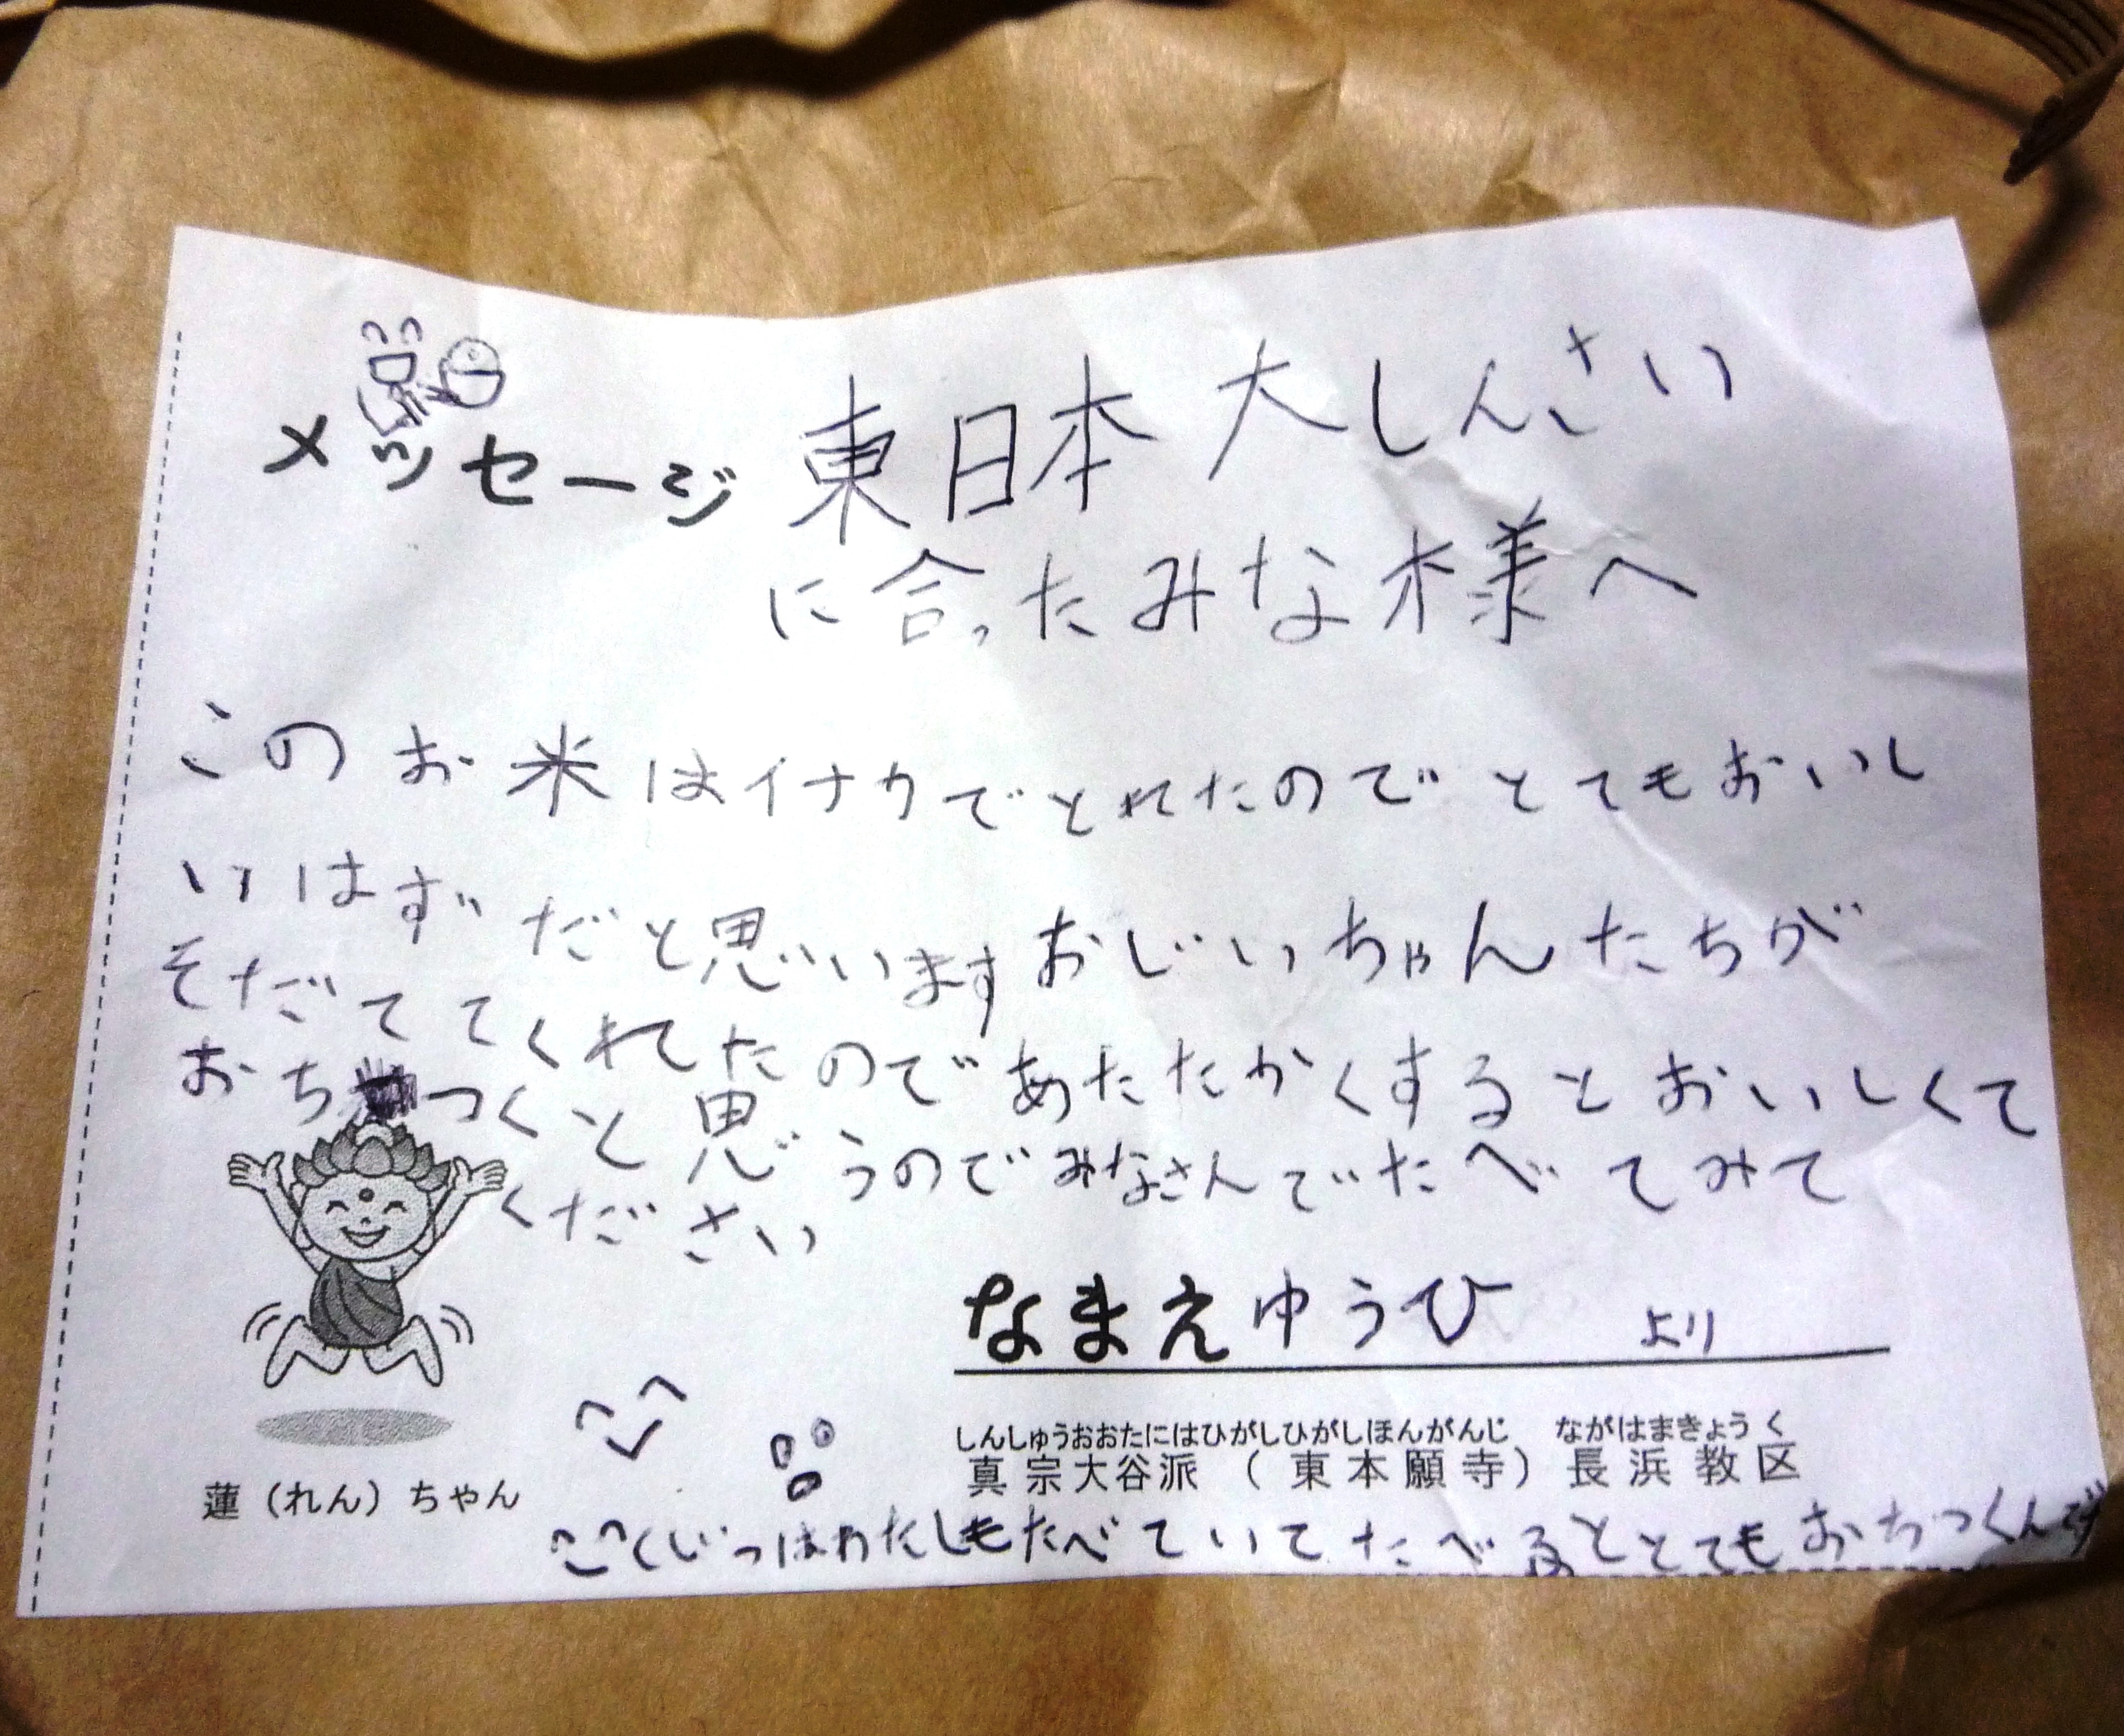 メッセージ 東日本 大しんさい
に合ったみな様へ
このお米はイナカでとれたのでとてもおいし
いはずだと思いますおじいちゃんたちが
そだててくれたのであたたかくするとおいしくて
おちつくと思うのでみなさんでたべてみて
ください
なまえ ゆうひ より
しんしゅうおおたにはひがしひがしほんがんじ ながはまきょうく
真宗大谷派(東本願寺)長浜教区
蓮(れん)ちゃん
わたしもたべていてたべるととてもおちつくんです